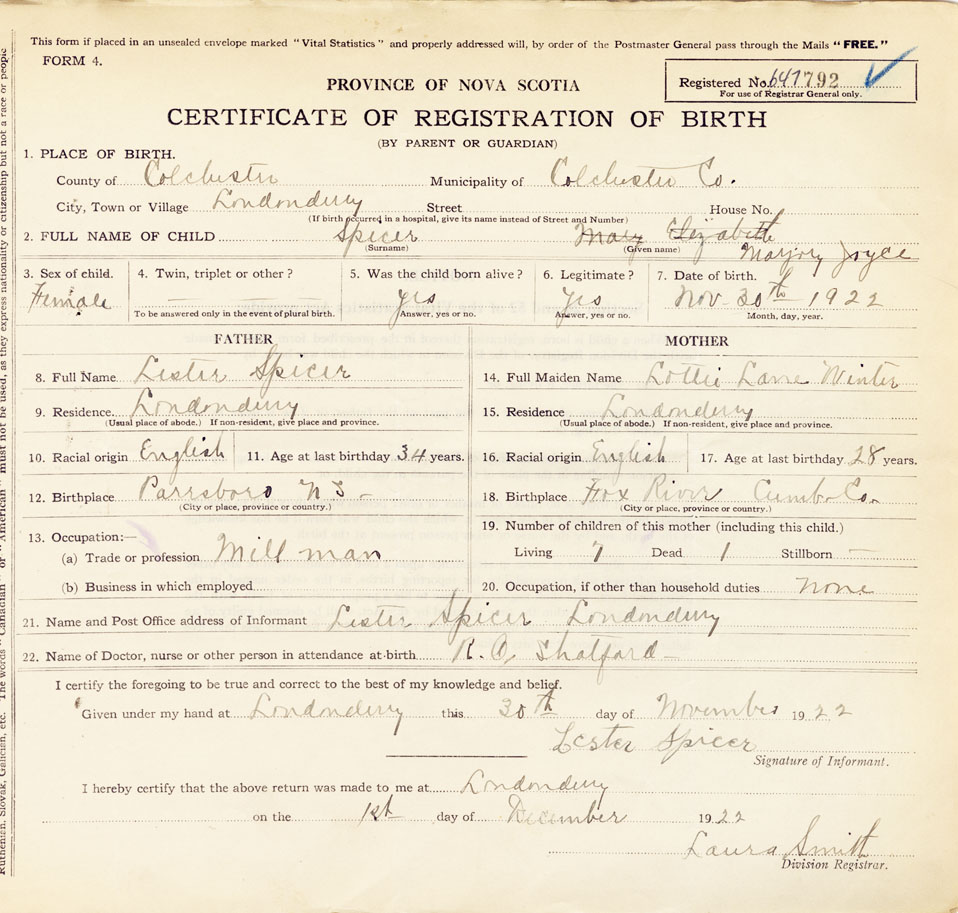 This form if placed in an unsealed envelope marked "Vital Statistics" and properly addressed will, by order of the Postmaster General pass through the Mails "FREE."
FORM 4.
Registered No. 641792
For use of Registrar General only.
PROVINCE OF NOVA SCOTIA
CERTIFICATE OF REGISTRATION OF BIRTH
(BY PARENT OR GUARDIAN)
1. PLACE OF BIRTH.
County of Colchester Municipality of Colchester Co.
City, Town or Village Londonderry Street House No.
(If birth occurred in a hospital, give its name instead of Street and Number)
2. FULL NAME OF CHILD Spicer Mary Elizabeth
(Surname) (Given name) Marjory Joyce
3. Sex of child. 4. Twin, triplet or other? 5. Was the child born alive? 6. Legitimate? 7. Date of birth.
Female yes yes Nov. 30th 1922
To be answered only in the event of plural birth. Answer, yes or no. Answer, yes or no. Month, day, year.
FATHER
8. Full Name Lester Spicer
9. Residence. Londonderry
(Usual place of abode.) If non-resident, give place and province.
10. Racial origin English 11. Age at last birthday 34 years.
12. Birthplace Parrsboro N S -
(City or place, province or country.)
13. Occupation:—
(a) Trade or profession Mill man
(b) Business in which employed
MOTHER
14. Full Maiden Name Lottie Lane Winter
15. Residence Londonderry
(Usual place of abode.) If non-resident, give place and province.
16. Racial origin English 17. Age at last birthday 28 years.
18. Birthplace Fox River Cumb. Co.
(City or place, province or country.)
19. Number of children of this mother (including this child.)
Living 7 Dead 1 Stillborn —
20. Occupation, if other than household duties none
21. Name and Post Office address of Informant Lester Spicer Londonderry
22. Name of Doctor, nurse or other person in attendance at birth R. O. Shatford
I certify the foregoing to be true and correct to the best of my knowledge and belief.
Given under my hand at Londonderry this 30th day of November 1922
Lester Spicer
Signature of Informant.
I hereby certify that the above return was made to me at Londonderry
on the 1st day of December 1922
Laura Smith
Division Registrar.
Ruthenian, Slovak, Galician, etc. The words "Canadian" or "American" must not be used, as they express nationality or citizenship but not a race or people